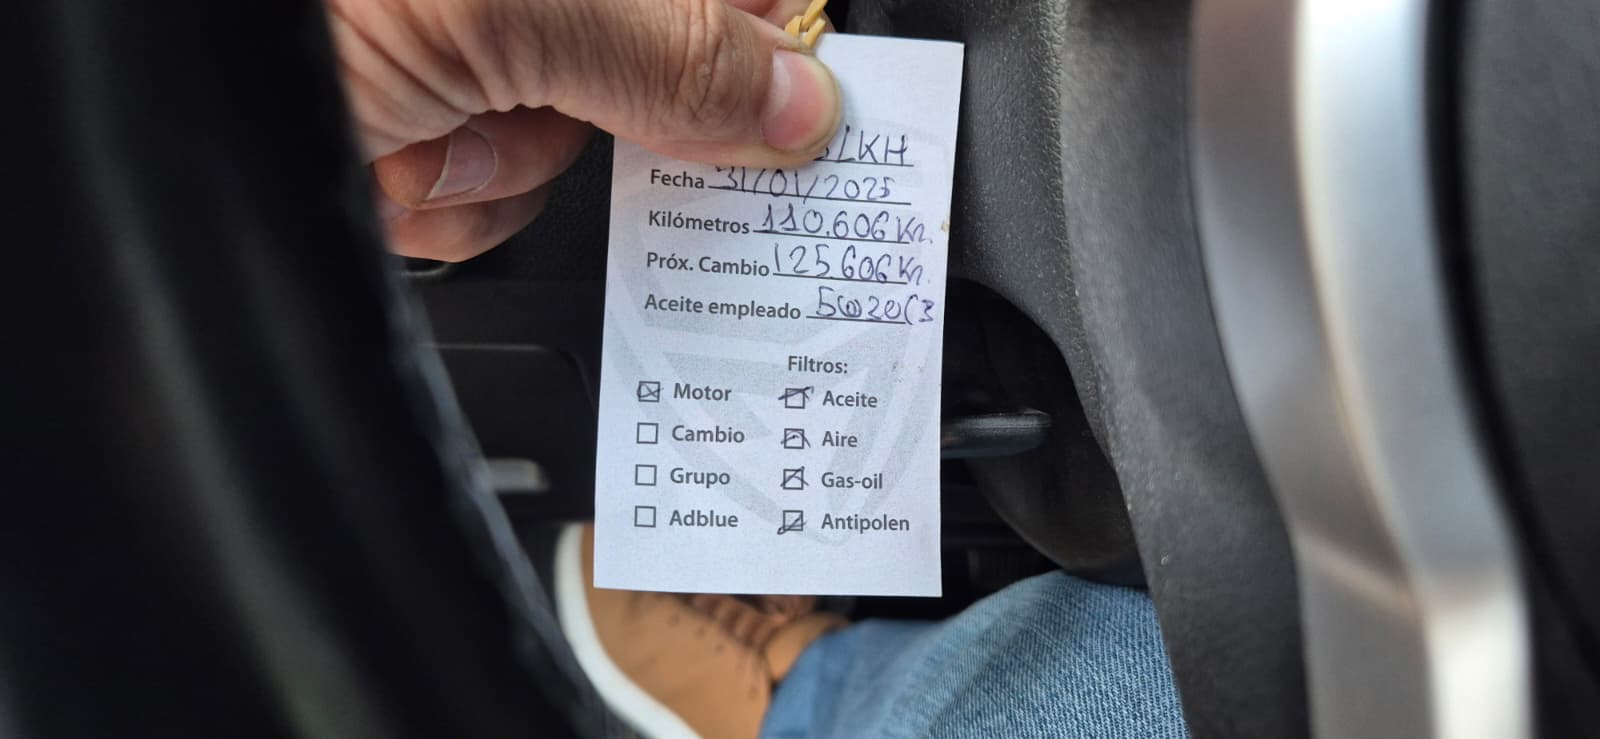 LKH
Fecha 31/01/2025
Kilómetros 110.606 Km.
Próx. Cambio 125.606 Km.
Aceite empleado 5W20C3
Filtros:
Motor Aceite
Cambio Aire
Grupo Gas-oil
Adblue Antipolen